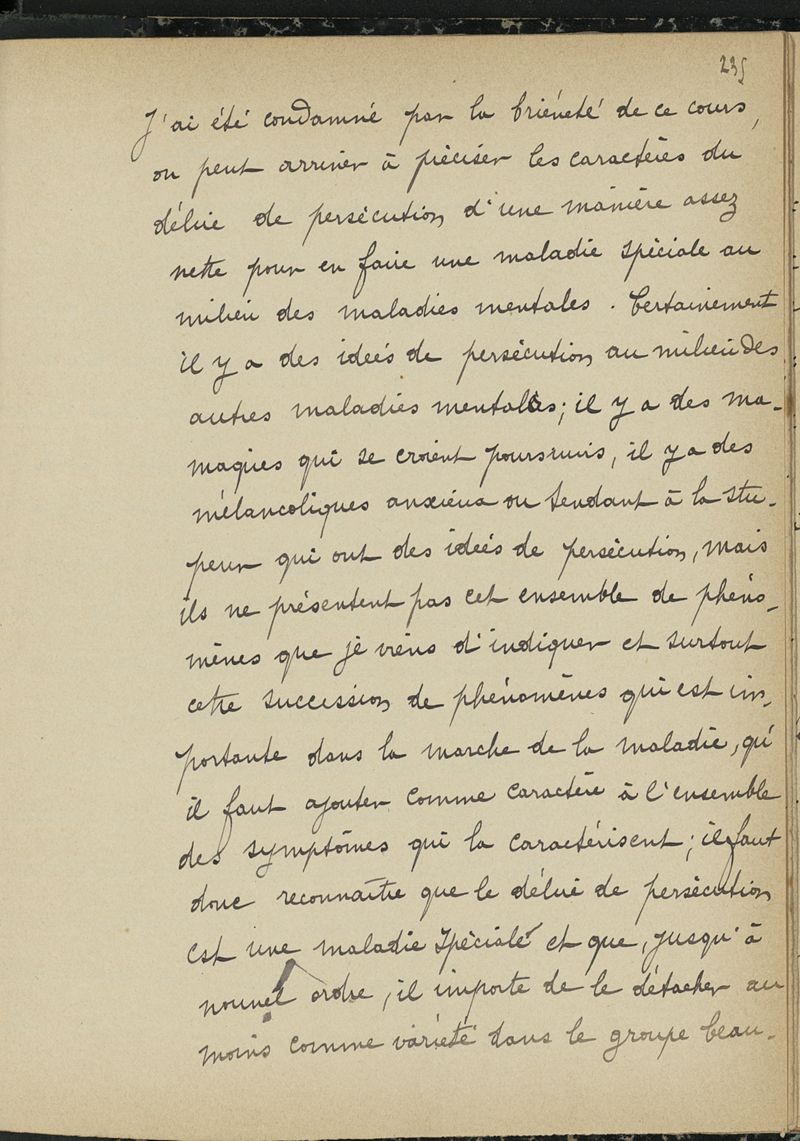 235
J'ai été condamné par la brièveté de ce cours,
on peut arriver à préciser les caractères du
délire de persécution d'une manière assez
nette pour en faire une maladie spéciale au
milieu des maladies mentales. Certainement
il y a des idées de persécution au milieu des
autres maladies mentales; il y a des ma-
niaques qui se croient poursuivis, il y a des
mélancoliques anxieux ou tendant à la stu-
peur qui ont des idées de persécution, mais
ils ne présentent pas cet ensemble de phéno-
mènes que je viens d'indiquer et surtout
cette succession de phénomènes qui est im-
portante dans la marche de la maladie, qu'
il faut ajouter comme caractère à l'ensemble
des symptômes qui la caractérisent; il faut
donc reconnaître que le délire de persécution
est une maladie spéciale et que, jusqu'à
nouvel ordre, il importe de le détacher au
moins comme variété dans le groupe beau-